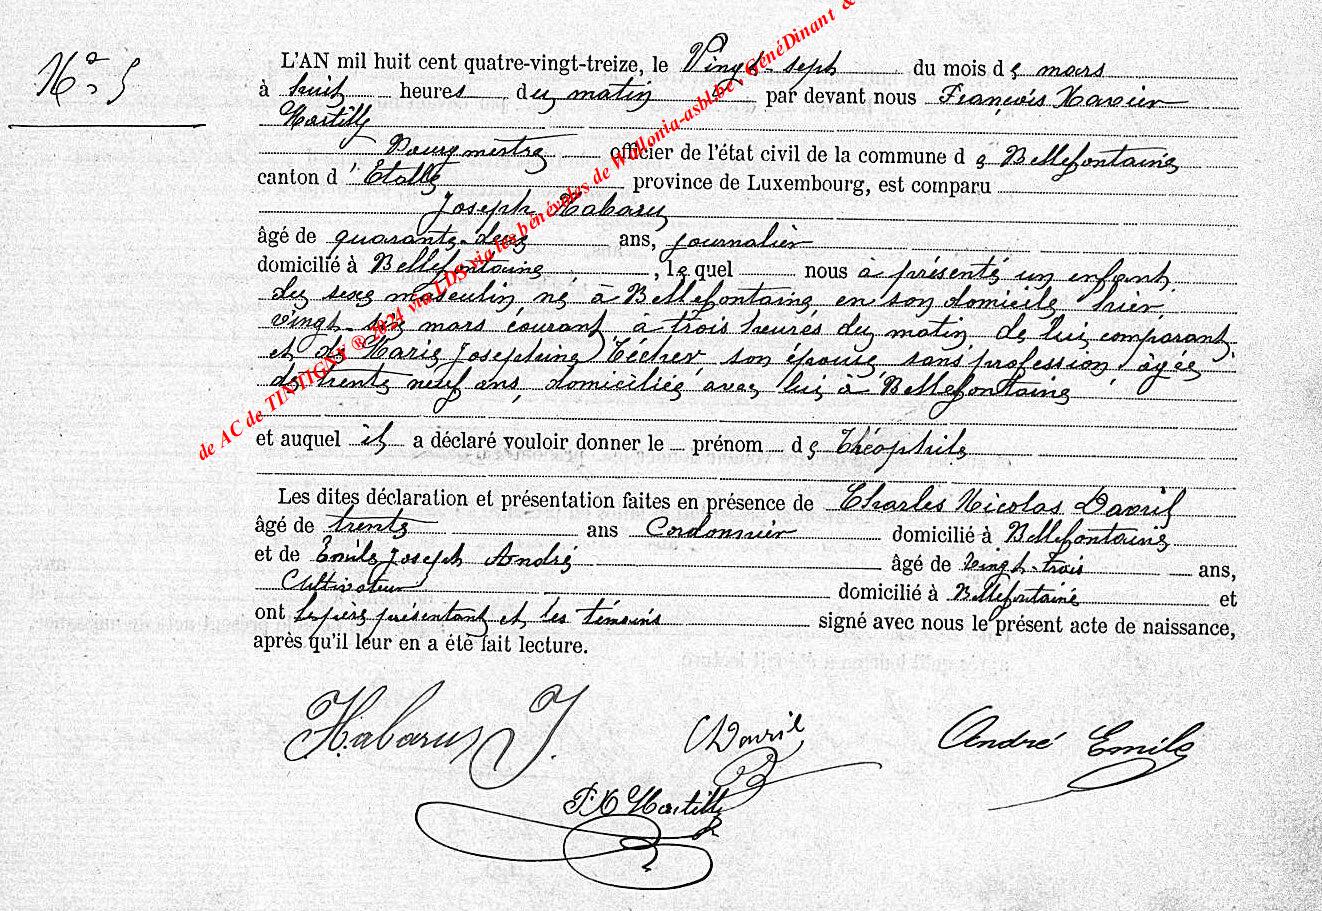 N° 5
L'AN mil huit cent quatre-vingt-treize, le Vingt-sept du mois de mars
à huit heures du matin par devant nous François Xavier
Hartilly
Bourgmestre officier de l'état civil de la commune de Bellefontaine
canton d'Etalle province de Luxembourg, est comparu
Joseph Habaru
âgé de quarante-deux ans, journalier
domicilié à Bellefontaine, lequel nous à présenté un enfant
du sexe masculin né à Bellefontaine en son domicile hier,
vingt-six mars courant à trois heures du matin de lui comparant
et de Marie Josephine son épouse, sans profession, âgée
de trente neuf ans, domiciliée avec lui à Bellefontaine
et auquel il a déclaré vouloir donner le prénom de Théophile
Les dites déclaration et présentation faites en présence de Charles Nicolas Davril
âgé de trente ans Cordonnier domicilié à Bellefontaine
et de Emile Joseph André âgé de Vingt-trois ans,
Cultivateur domicilié à Bellefontaine et
ont le père présentant et les témoins signé avec nous le présent acte de naissance,
après qu'il leur en a été fait lecture.
Habaru J.
C Davril
André Emile
F. X Hartilly
de AC de TINTIGNY ® 2024 via LDS via les bénévoles de Wallonia-asbl.be - GénéDinant &